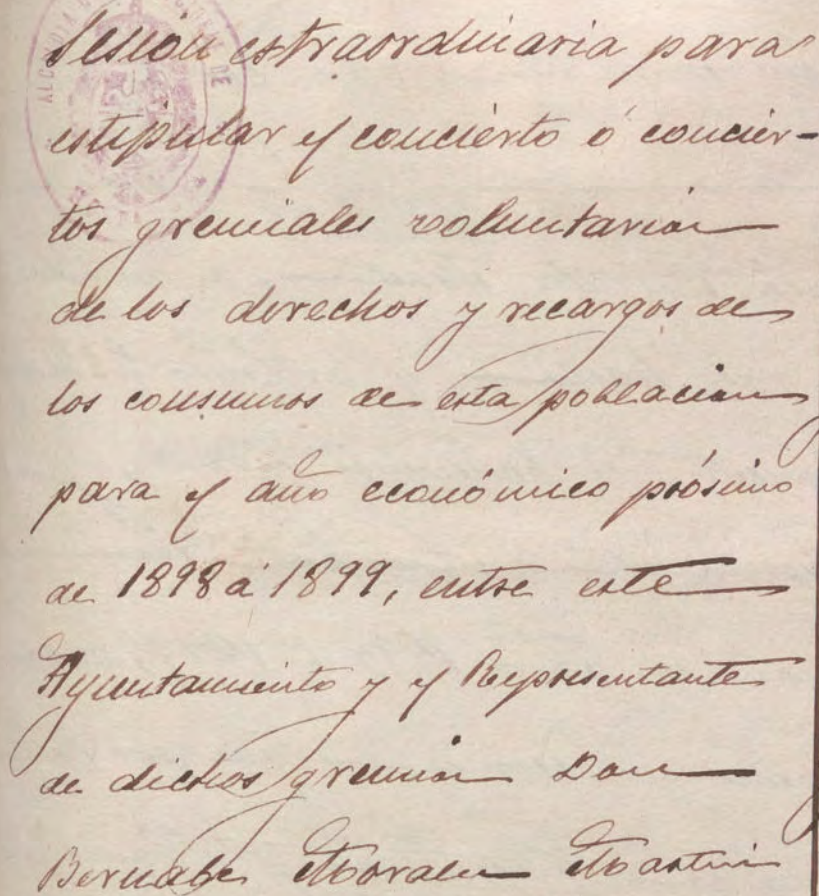 Sesión estraordinaria para
estipular el concierto ó concier-
tos gremiales voluntarios
de los derechos y recargos de
los consumos de esta poblacion
para el año económico prósimo
de 1898 á 1899, entre este
Ayuntamiento y el Representante
de dichos gremios Don
Bernabe Morales Martin
ALCALDIA
DE